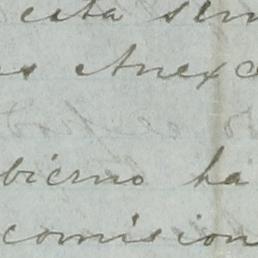 esta sem
es Anexo
bierno ha
comision